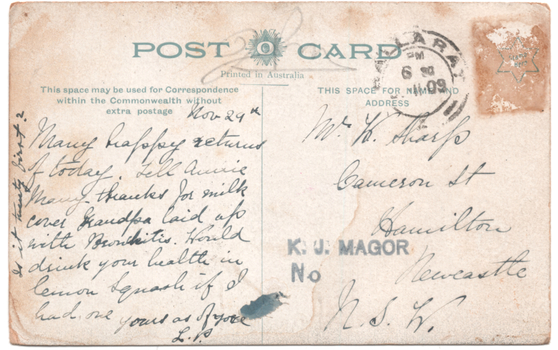 POST CARD
Printed in Australia
This space may be used for Correspondence
within the Commonwealth without
extra postage
THIS SPACE FOR NAME AND
ADDRESS
Nov 29th
Many happy returns
of today. Tell Annie
Many thanks for milk
cover Grandpa laid up
with Bronchitis. Would
drink your health in
lemon squash if I
had one yours as of yore
L.P.
is it twenty first?
Mr K. Sharp
Cameron St
Hamilton
Newcastle
N. S. W.
K. J. MAGOR
No
LARAT
PM
6
09